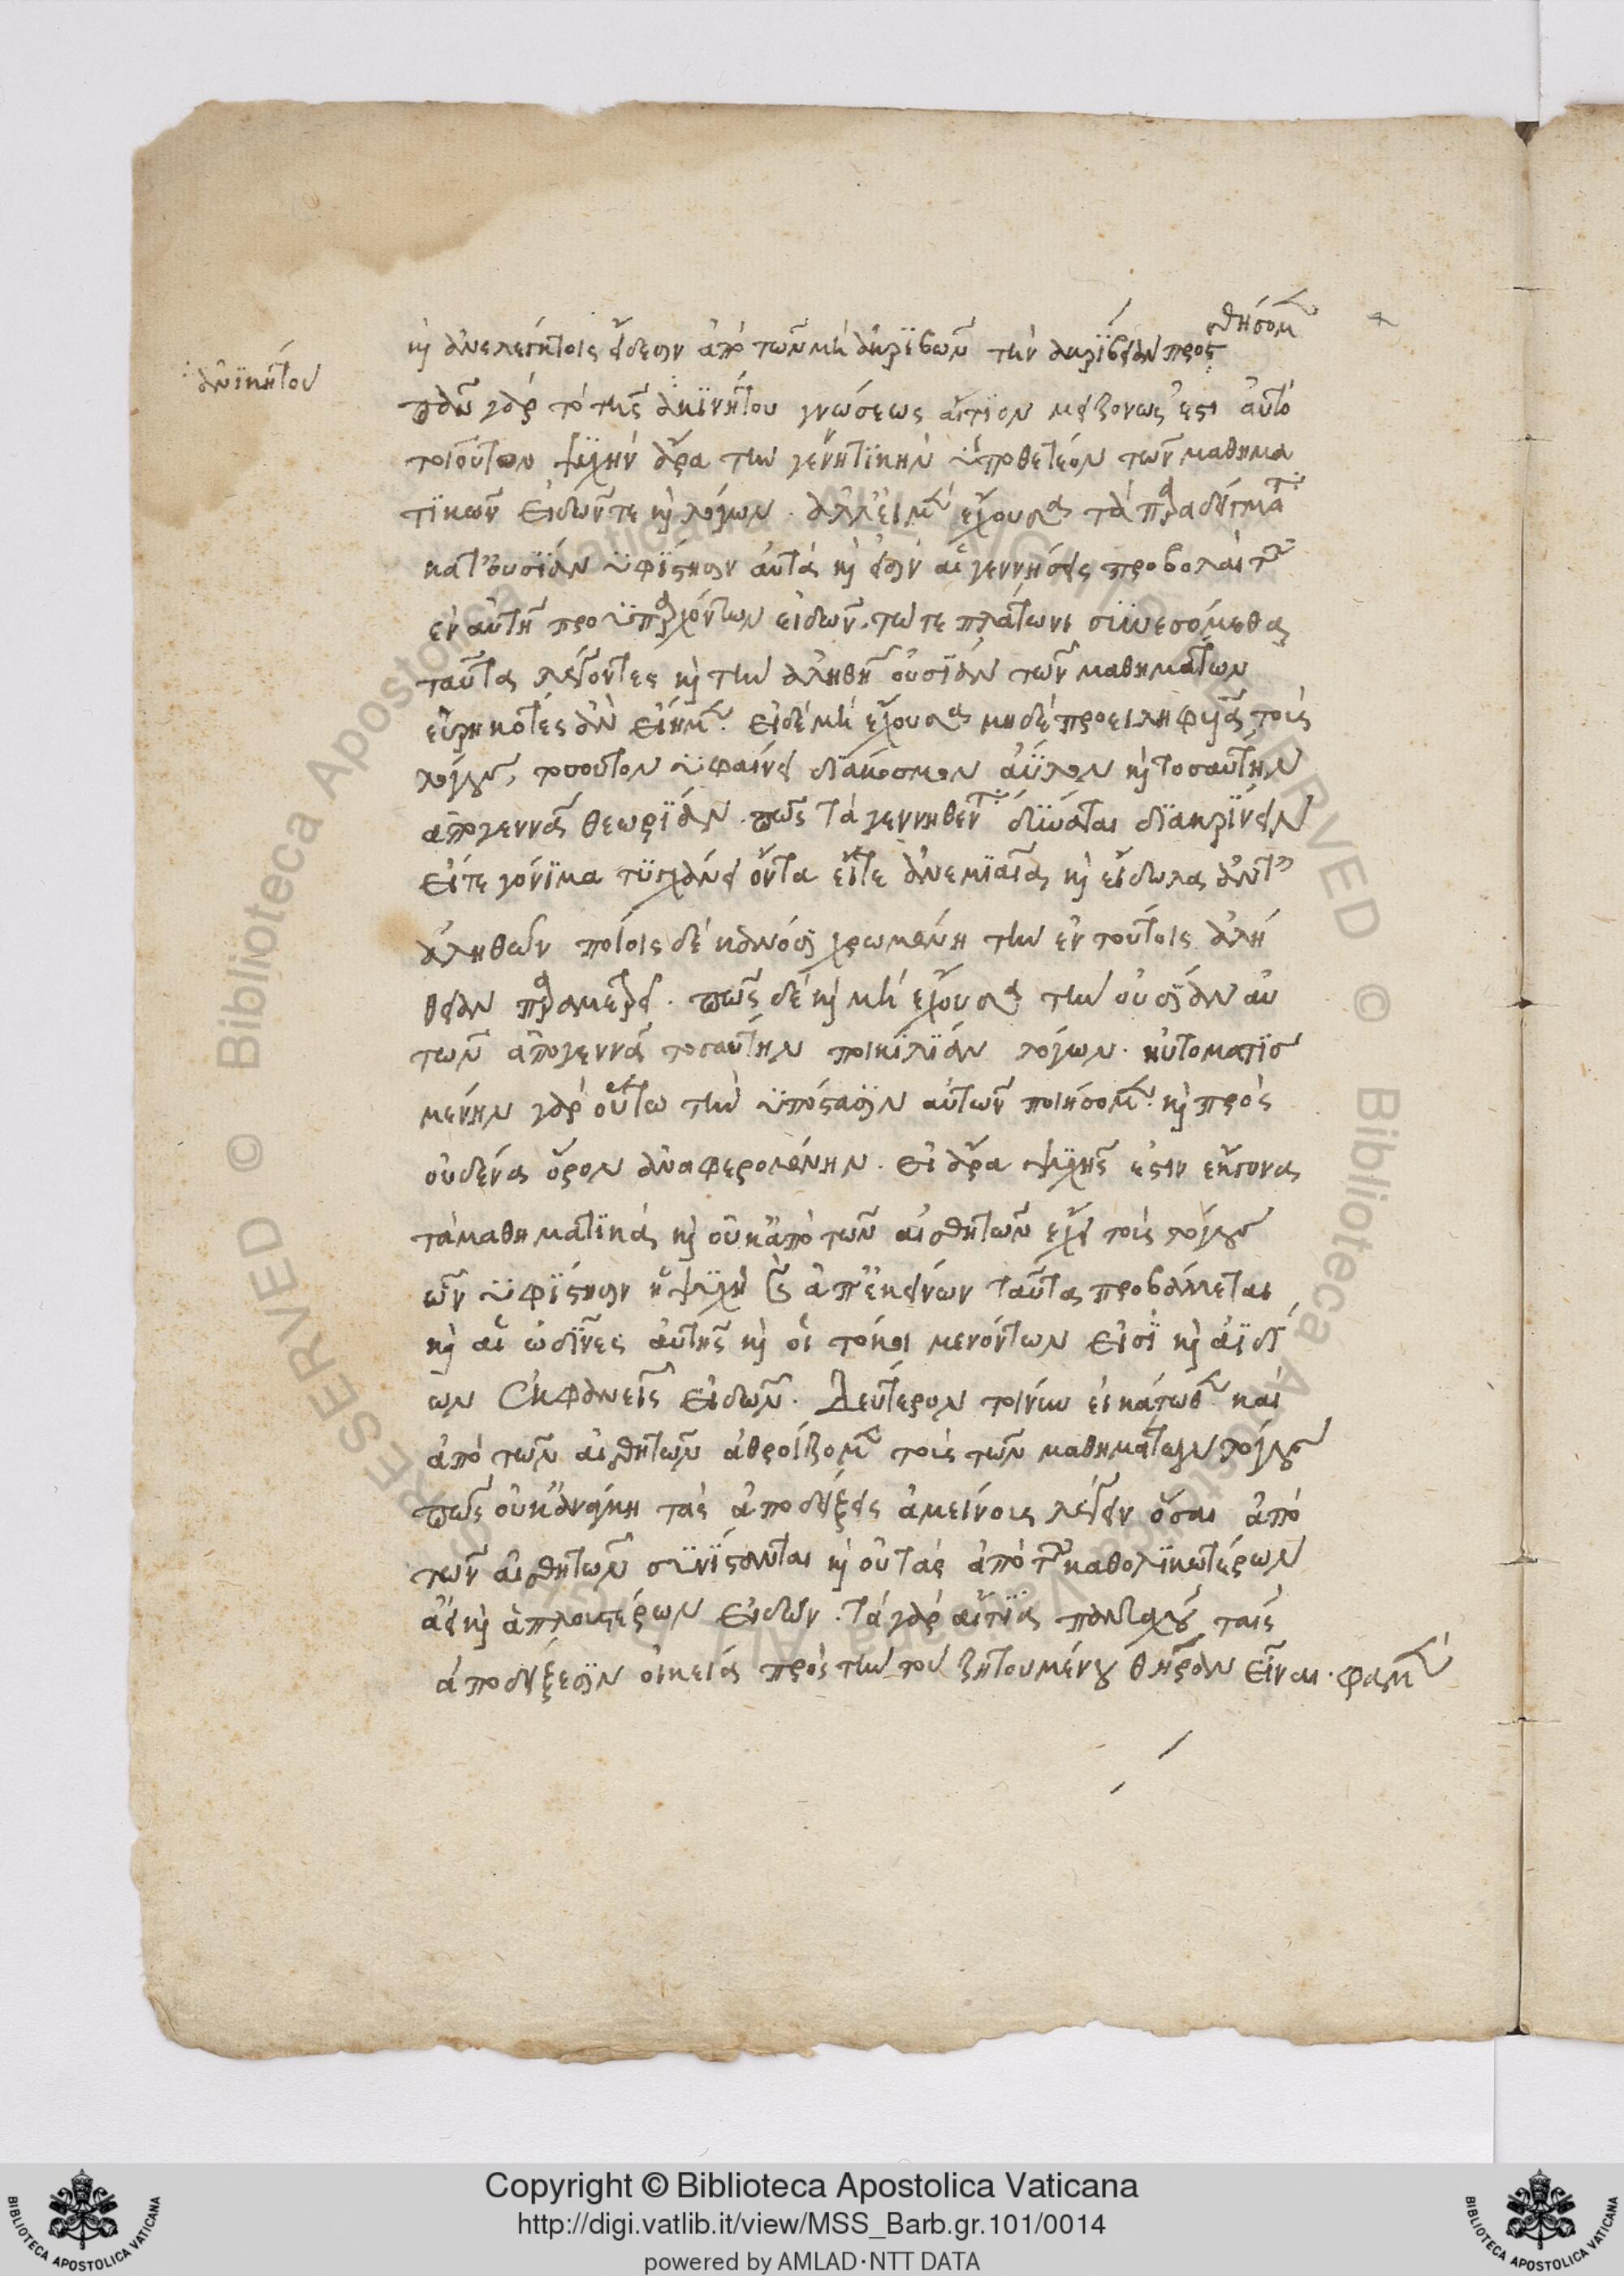 καὶ ἀνελέγκτοις εἴδεσιν ἀπὸ τῶν μὴ ἀκριβῶν τὴν ἀκρίβειαν προς
θήσομ
ἀνικήτου
πᾶν γὰρ τὸ τῆς ἀκινήτου γνώσεως αἴτιον μειζόνως ἐστι αὐτὸ
τοιοῦτον ψυχὴν ἄρα τὴν γεννητικὴν ὑποθετέον τῶν μαθημα
τικῶν εἰδῶν τε καὶ λόγων. ἀλλ' εἰ μὲν ἔχουσα τὰ παραδείγματα
κατ' οὐσίαν ὑφίστησιν αὐτὰ καὶ εἰσὶν αἱ γεννήσεις προβολαὶ τῶν
ἐν αὐτῇ προϋπαρχόντων εἰδῶν, τῷ τε πλάτωνι συνεσόμεθα
ταῦτα λέγοντες καὶ τὴν ἀληθῆ οὐσίαν τῶν μαθημάτων
εὑρηκότες ἂν εἴημεν. εἰ δὲ μὴ ἔχουσα μηδὲ προειληφυῖα τοὺς
λόγους, τοσοῦτον ὑφαίνει διάκοσμον ἄϋλον καὶ τοσαύτην
ἀπογεννᾷ θεωρίαν. πῶς τὰ γεννηθέντα δύναται διακρίνειν
εἴτε γόνιμα τυγχάνει ὄντα εἴτε ἀνεμιαῖα καὶ εἴδωλα ἀντὶ
ἀληθῶν ποίοις δὲ κανόσι χρωμένη τὴν ἐν τούτοις ἀλή
θειαν παραμετρεῖ. πῶς δὲ καὶ μὴ ἔχουσα τὴν οὐσίαν αὐ
τῶν ἀπογεννᾷ τοσαύτην ποικιλίαν λόγων. ηὐτοματισ
μένην γὰρ οὕτω τὴν ὑπόστασιν αὐτῶν ποιήσομεν. καὶ πρὸς
οὐδένα ὅρον ἀναφερομένην. εἰ ἄρα ψυχῆς ἐστιν ἔκγονα
τὰ μαθηματικά, καὶ οὐκ ἀπὸ τῶν αἰσθητῶν ἔχει τοὺς λόγους
ὧν ὑφίστησιν ἡ ψυχὴ ἀπ' ἐκείνων ταῦτα προβάλλεται
καὶ αἱ ὠδῖνες αὐτῆς καὶ οἱ τόκοι μενόντων εἰσὶ καὶ ἀϊδί
ων ἐκφανεῖς εἰδῶν. Δεύτερον τοίνυν εἰ κάτωθεν καὶ
ἀπὸ τῶν αἰσθητῶν ἀθροίζομεν τοὺς τῶν μαθημάτων λόγους
πῶς οὐκ ἀνάγκη τὰς ἀποδείξεις ἀμείνους λέγειν ὅσαι ἀπὸ
τῶν αἰσθητῶν συνίστανται καὶ οὐ τὰς ἀπὸ τῶν καθολικωτέρων
ἀεὶ καὶ ἁπλουστέρων εἰδῶν. τὰ γὰρ αἴτια πανταχοῦ ταῖς
ἀποδείξεσιν οἰκεῖα πρὸς τὴν τοῦ ζητουμένου θήραν εἶναι. φαμὲν
Copyright © Biblioteca Apostolica Vaticana
http://digi.vatlib.it/view/MSS_Barb.gr.101/0014
powered by AMLAD·NTT DATA